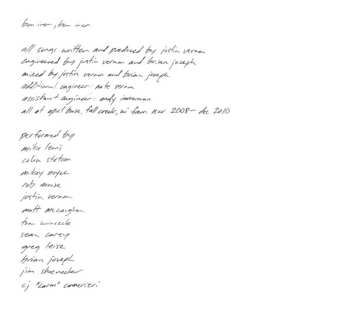 bon iver, bon iver
all songs written and produced by justin vernon
engineered by justin vernon and brian joseph
mixed by justin vernon and brian joseph
additional engineer nate vernon
assistant engineer andy
all at april base, fall creek, wi from nov 2008 - dec 2010
performed by
mike lewis
colin stetson
mikey noyce
rob moose
justin vernon
matt mccaughan
tom wincek
sean carey
greg leisz
brian joseph
jim schoenecker
cj "carm" camerieri